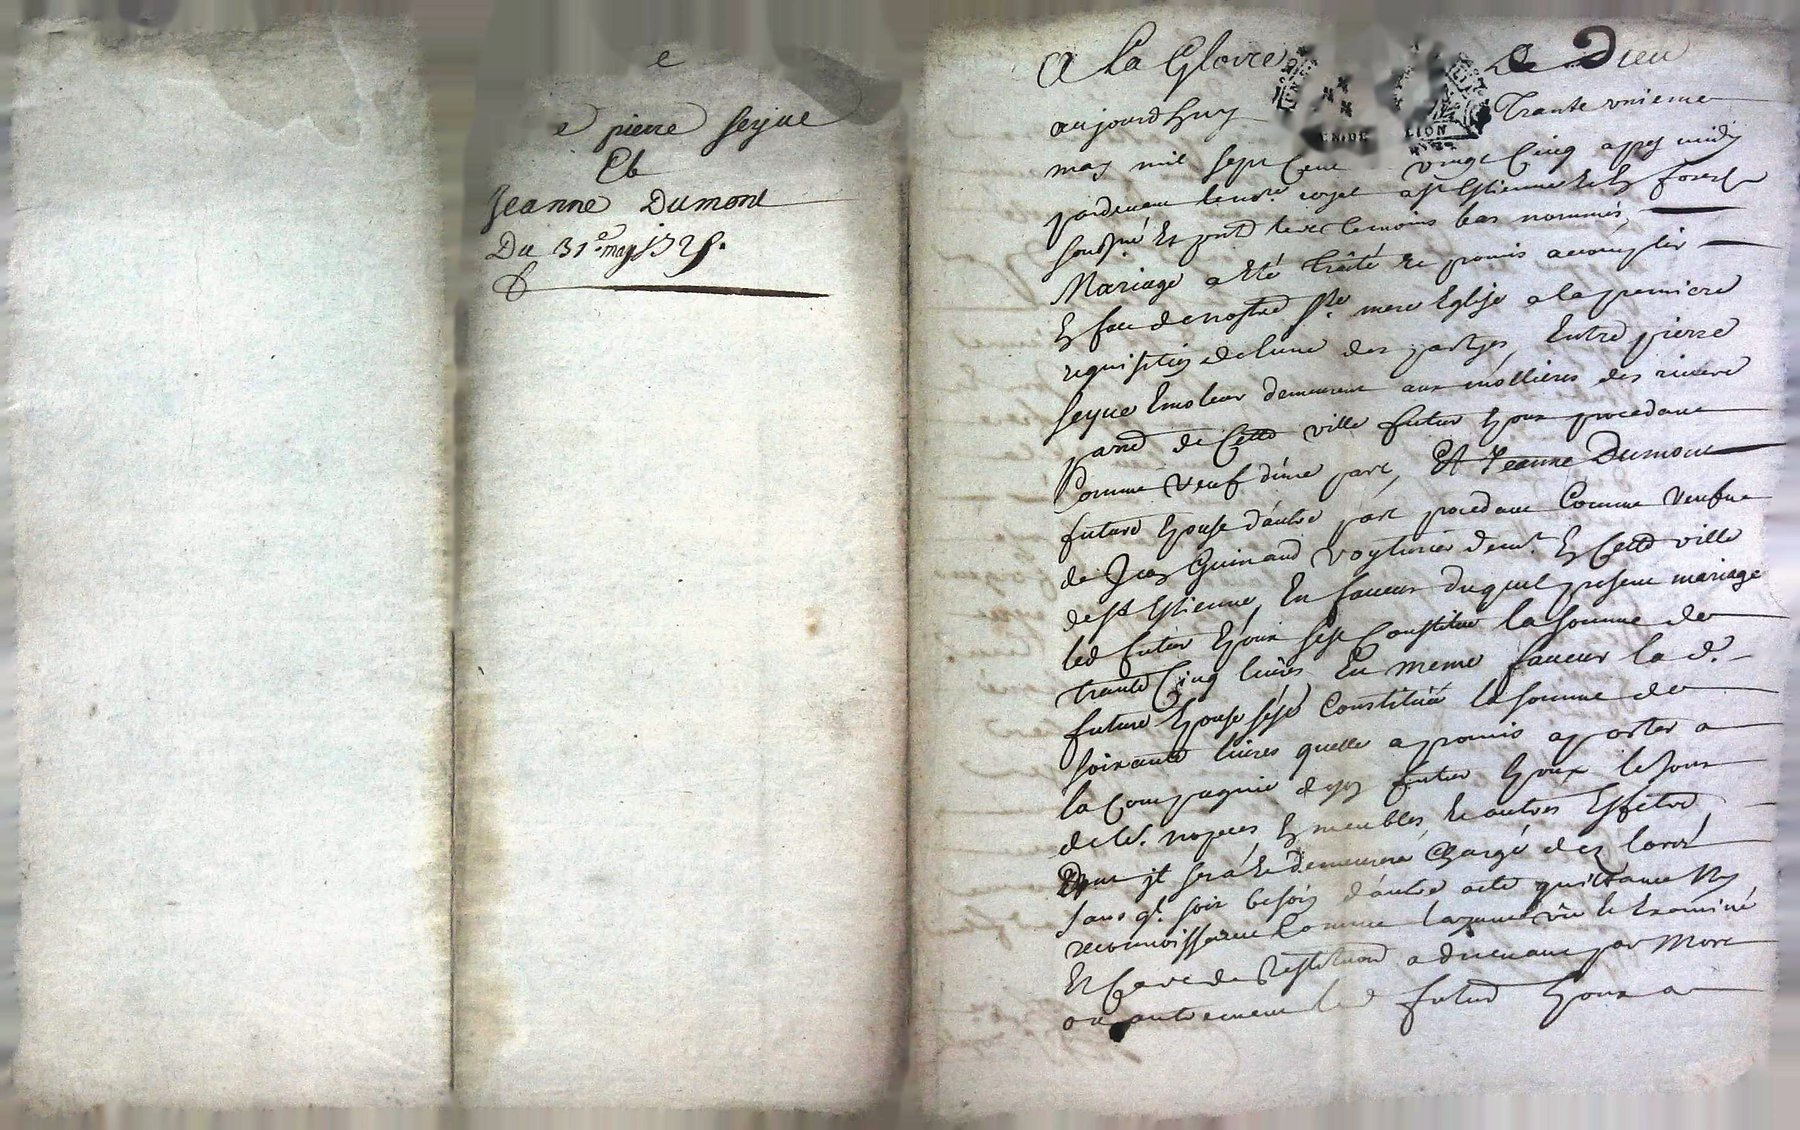 e
e pierre seyve
Et
Jeanne Dumont
Du 31e may 1725.
A La Gloire De Dieu
aujourdhuy Trante unieme
may mil sept Cent vingt Cinq apres midy
pardevant le no.re royal a St Estienne En forest
soussné Et pnts les temoins bas nommés
Mariage a Eté traité Et promis accomplir
En face de nostre Ste mere Eglise a la premiere
requisition de lune des partyes, Entre pierre
seyve Emoleur demeurant aux mollieres des riviere
parr de Cette ville futur Epoux procedant
Comme veuf dúne part, Et Jeanne Dumont
future Epouse dáutre part procedant Comme veufve
de Guinand voyturier demt. En Cette ville
de St Estienne, En faveur duquel present mariage
led futur Epoux sest Constitué la somme de
trante Cinq livres En meme faveur la d.
future Epouse sést Constituée la somme de
soixante livres quelle a promis aporter a
la Compagnie de son futur Epoux le jour
de leurs nopces En meubles Et autres Effets
Dont jl será Et demeurera Chargé dez lors
sans ql. soit besoin dáutre acte quittance Ny
reconnoissance Comme layant vú Et Examiné
Et Cas de Restitution advenant par Mort
ou autrement led futur Epoux a
GEN.DE LION